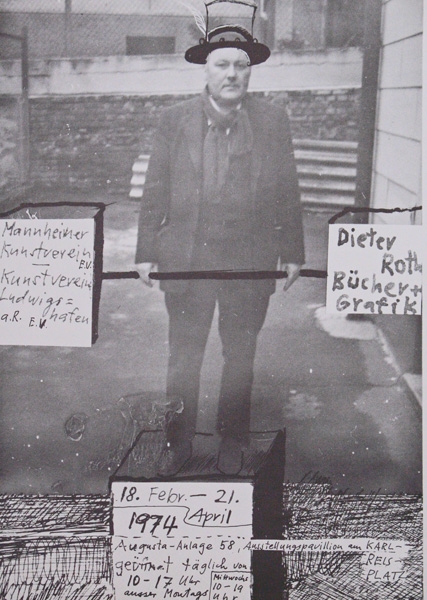 Mannheiner
Kunstverein
E.V.
Kunstverein
Ludwigs=
hafen
a.R. E.V.
Dieter
Roth
Bücher+
Grafik
18. Febr. — 21.
April
1974
Augusta-Anlage 58, Ausstellungspavillion am KARL-
REIS-
PLATZ
geöffnet täglich von
10-17 Uhr
ausser Montags
Mittwochs
10-19
Uhr